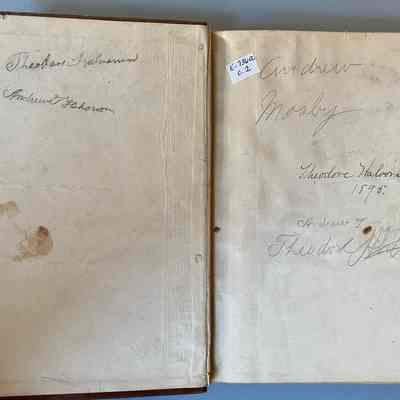 Theodore Halvorson
Andrew Halvorson
E-7362
c.2
Andrew
Mosby
Theodore Halvors
1895.
Andrew
Theodor